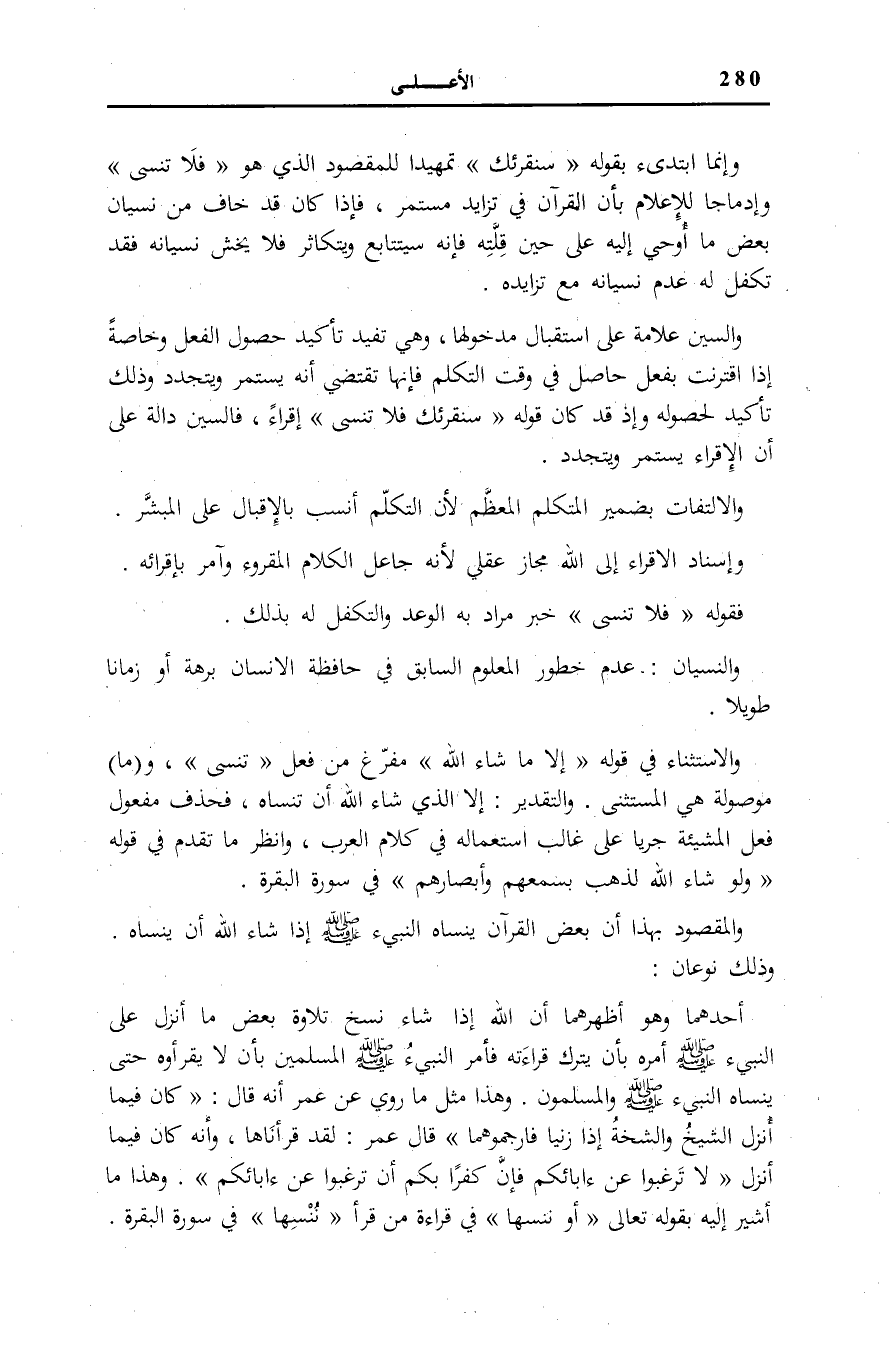 280
الأعـــلـــى
وإنما ابتدىء بقوله « سنقرئك » تمهيدا للمقصود الذي هو « فلَا تنسى »
وإدماجا للإِعلام بأن القرآن في تزايد مستمر ، فإذا كان قد خاف من نسيان
بعض ما أُوحي إليه على حين قِلَّتِه فإنه سيتتابع ويتكاثر فلا يخش نسيانه فقد
تكفل له عدم نسيانه مع تزايده .
والسين علامة على استقبال مدخولها ، وهي تفيد تأكيد حصول الفعل وخاصةً
إذا اقترنت بفعل حاصل في وقت التكلم فإنها تقتضي أنه يستمر ويتجدد وذلك
تأكيد لحصوله وإذ قد كان قوله « سنقرئك فلا تنسى » إقراءً ، فالسين دالة على
أن الإِقراء يستمر ويتجدد .
والالتفات بضمير المتكلم المعظَّم لأن التكلّم أنسب بالإِقبال على المبشَّر .
وإسناد الاقراء إلى الله مجاز عقلي لأنه جاعل الكلام المقروء وآمر بإقرائه .
فقوله « فلا تنسى » خبر مراد به الوعد والتكفل له بذلك .
والنسيان : عدم خطور المعلوم السابق في حافظة الانسان برهة أو زمانا
طويلا .
والاستثناء في قوله « إلا ما شاء الله » مفرّغ من فعل « تنسى » ، و(ما)
موصولة هي المستثنى . والتقدير : إلا الذي شاء الله أن تنساه ، فحذف مفعول
فعل المشيئة جريا على غالب استعماله في كلام العرب ، وانظر ما تقدم في قوله
« ولو شاء الله لذهب بسمعهم وأبصارهم » في سورة البقرة .
والمقصود بهذا أن بعض القرآن ينساه النبيء ﷺ إذا شاء الله أن ينساه .
وذلك نوعان :
أحدهما وهو أظهرهما أن الله إذا شاء نسخ تلاوة بعض ما أنزل على
النبيء ﷺ أمره بأن يترك قراءَته فأمر النبيءُ ﷺ المسلمين بأن لا يقرأوه حتى
ينساه النبيء ﷺ والمسلمون . وهذا مثل ما روي عن عمر أنه قال : « كان فيما
أُنزل الشيخُ والشخةُ إذا زنيا فارجموهما » قال عمر : لقد قرأنَاها ، وأنه كان فيما
أنزل « لا تَرغبوا عن ءابائكم فإنَّ كفرًا بكم أن ترغبوا عن ءابائكم » . وهذا ما
أشير إليه بقوله تعالى « أو ننسها » في قراءة من قرأ « نُنْسِها » في سورة البقرة .